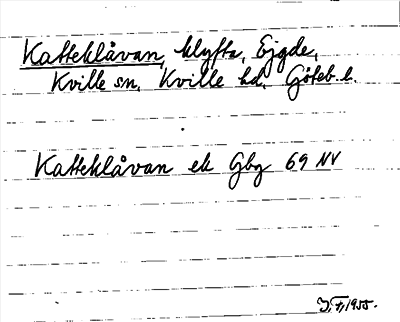 Katteklåvan, klyfta, Ejgde,
Kville sn, Kville hd, Göteb. l.
Katteklåvan ek Gbg 69 NV
J, F, 1955.